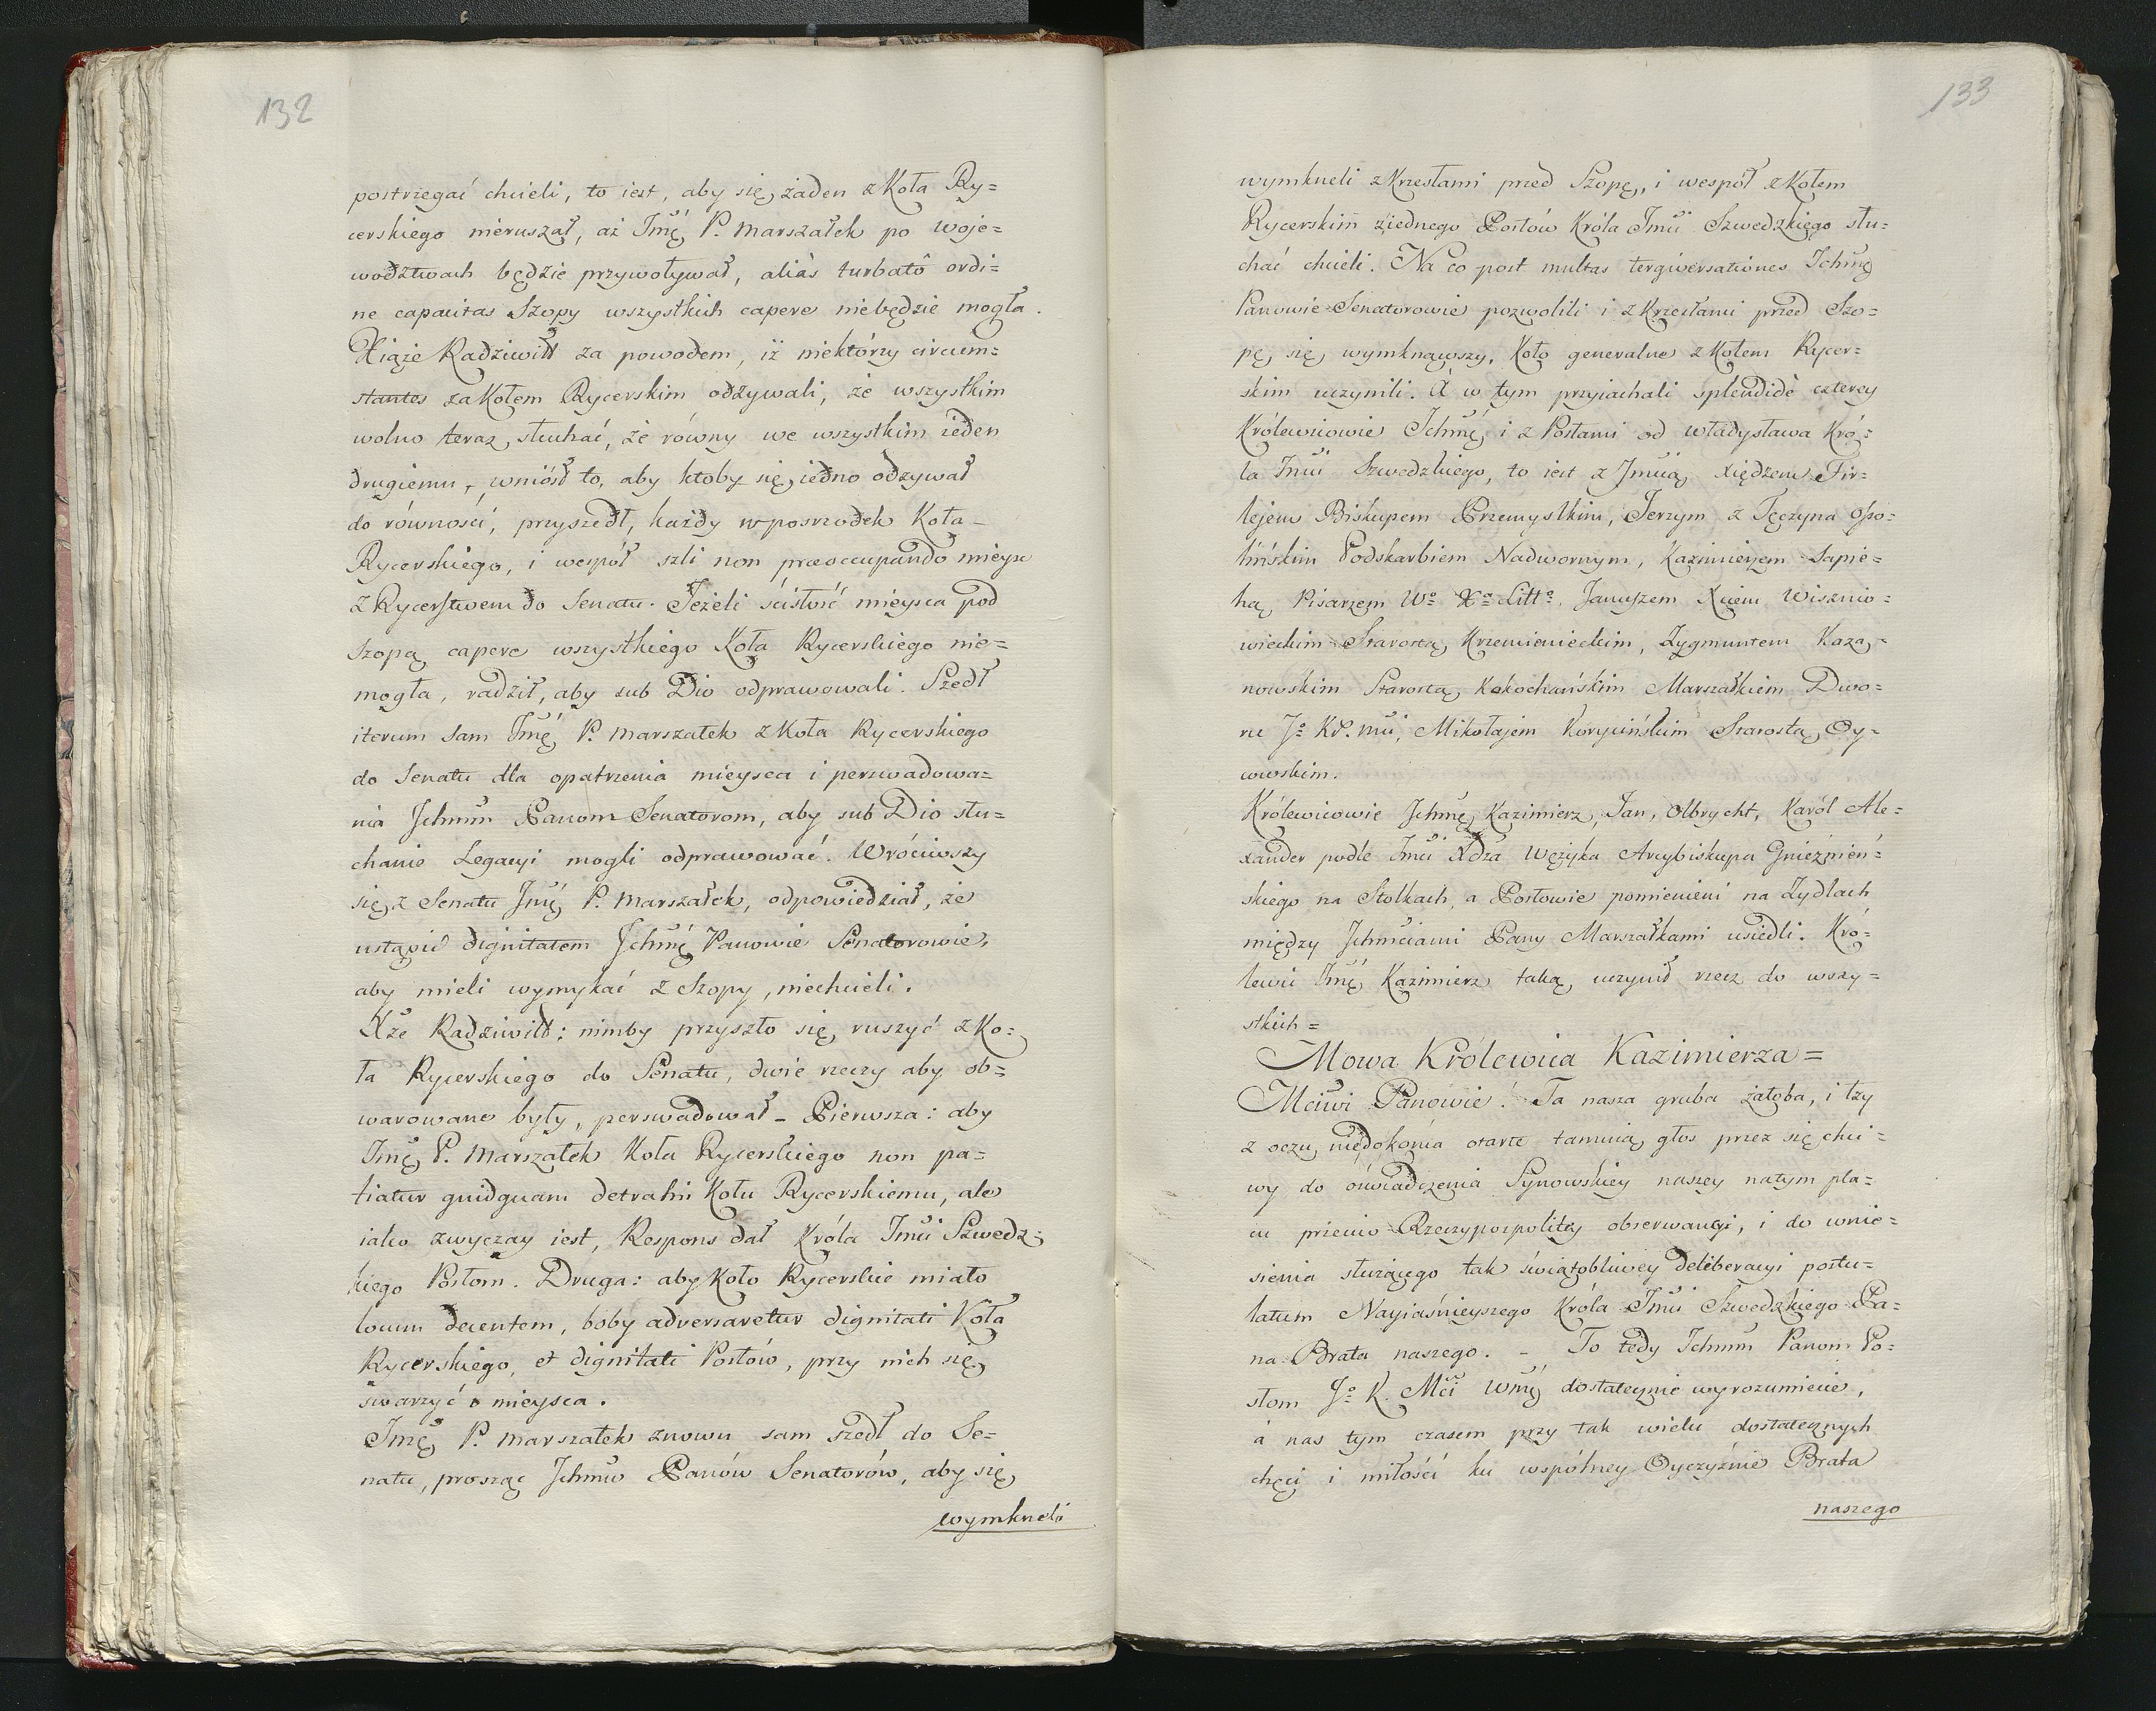 132
postrzegać chcieli, to iest, aby się żaden z Koła Ry=
cerskiego nieruszał, aż Jmć P. Marszałek po woje=
wodztwach będzie przywoływał, aliàs turbatô ordi=
ne capacitas Szopy wszystkich capere niebędzie mogła.
Xiąże Radziwiłł za powodem, iż niektórzy circum=
stantes za Kołem Rycerskim odzywali, że wszystkim
wolno teraz słuchać, że równy we wszystkim ieden
drugiemu, wniósł to, aby ktoby się iedno odzywał
do równości, przyszedł, każdy wposrzodek Koła
Rycerskiego, i wespół szli non præoccupando mieysc
z Rycerstwem do Senatu. Jeżeli scisłość mieysca pod
Szopą capere wszystkiego Koła Rycerskiego nie=
mogła, radził, aby sub Dio odprawowali. Szedł
iterum sam Jmć P. Marszałek z Koła Rycerskiego
do Senatu dla opatrzenia mieysca i perswadowa=
nia Jchmm Panom Senatorom, aby sub Dio słu=
chanie Legacyi mogli odprawować. Wróciwszy
się z Senatu Jmć P. Marszałek, odpowiedział, że
ustąpić dignitatem Jchmć Panowie Senatorowie,
aby mieli wymykać z Szopy, niechcieli.
Xże Radziwiłł: nimby przyszło się ruszyć z Ko=
ła Rycerskiego do Senatu, dwie rzeczy aby ob=
warowane były, perswadował – Pierwsza: aby
Jmć P. Marszałek Koła Rycerskiego non pa=
tiatur quidquam detrahi Kołu Rycerskiemu, ale
iako zwyczay iest, Respons dał Króla Jmci Szwedz=
kiego Posłom. Druga: aby Koło Rycerskie miało
locum decentem, boby adversaretur dignitati Koła
Rycerskiego, et dignitati Posłów, przy nich się
swarzyć o mieysca.
Jmć P. Marszałek znowu sam szedł do Se=
natu, prosząc Jchmw Panów Senatorów, aby się
wymkneli
133
wymkneli z Krzesłami przed Szopę, i wespół z Kołem
Rycerskim ziednego Posłów Króla Jmci Szwedzkiego słu=
chać chcieli. Na co post multas tergiversationes Jchmć
Panowie Senatorowie pozwolili i z Krzesłami przed Szo=
pę się wymknąwszy, Koło generalne z Kołem Rycer=
skim uczynili. A w tym przyiachali splendidè czterey
Królewicowie Jchmć i z Posłami od Władysława Kró=
la Jmci Szwedzkiego, to iest z Jmcią Xiędzem Fir=
lejem Biskupem Przemyskim, Jerzym z Tęczyna Osso=
lińskim Podskarbiem Nadwornym, Kazimierzem Sapie=
hą Pisarzem Wo Xa Litto, Januszem Xciem Wisznio=
wieckim Starostą Krzemienieckim, Zygmuntem Kaza=
nowskim Starostą Kokochańskim Marszałkiem Dwo=
ru Jo Kr. Mci, Mikołajem Korycińskim Starostą Oy=
cowskim.
Królewicowie Jchmć Kazimierz, Jan, Olbrycht, Karól Ale=
xander podle Jmci Xdza Wężyka Arcybiskupa Gnieźnień=
skiego na Stolkach, a Posłowie pomienieni na Zydlach
między Jchmciami Pany Marszałkami usiedli. Kró=
lewic Jmć Kazimierz taką uczynił rzecz do wszy=
stkich =
Mowa Królewica Kazimierza =
Mciwi Panowie! Ta nasza gruba żałoba, i łzy
z oczu niedokońca otarte tamuią głos przez się chci=
wy do oświadczenia Synowskiey naszey natym pla=
cu przeciw Rzeczypospolitey obserwancyi, i do wnie=
sienia służącego tak świątobliwey deliberacyi postu=
latum Nayiaśnieyszego Króla Jmci Szwedzkiego Pa=
na Brata naszego. – To tedy Jchmm Panom Po=
słom Jo K. Mci Wmć dostatecznie wyrozumiecie,
a nas tym czasem przy tak wielu dostatecznych
chęci i miłości ku wspólney Oyczyźnie Brata
naszego